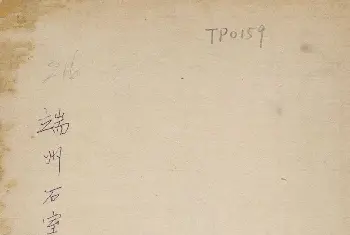 TP0159
端州石室